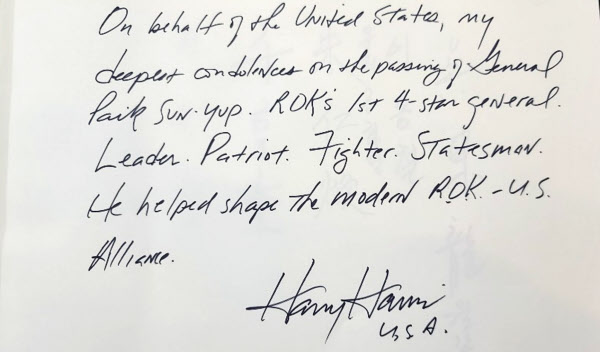 On behalf of the United States, my
deepest condolences on the passing of General
Paik Sun-yup. ROK's 1st 4-star general.
Leader. Patriot. Fighter. Statesman.
He helped shape the modern ROK.-U.S.
Alliance.
Harry Harris
USA.